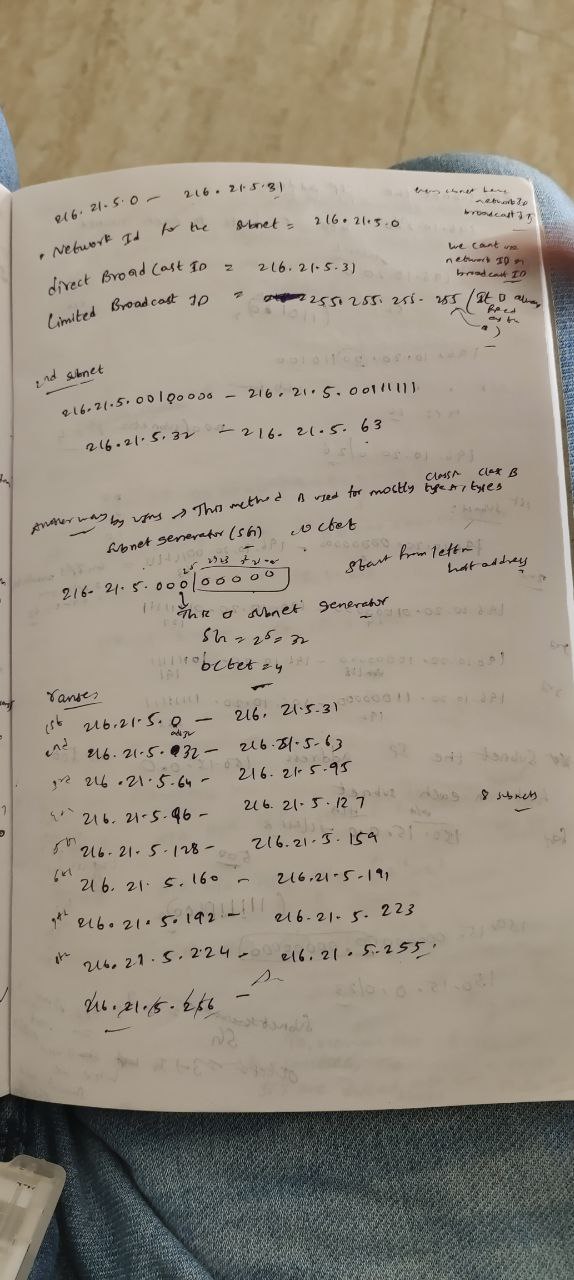 216.21.5.0 - 216.21.5.31
every subnet have
network ID
broadcast ID
• Network Id for the subnet = 216.21.5.0
we cant use
network ID or
broadcast ID
direct Broad Cast ID = 216.21.5.31
Limited Broadcast ID = 255.255.255.255 (It is always
2nd subnet
216.21.5.00100000 - 216.21.5.00111111
216.21.5.32 - 216.21.5.63
Another way by using → This method is used for mostly class A, class B
types
Subnet generator (Sh) octet
Start from left in
host address
216.21.5.000 00000
This is subnet generator
Sh = 2⁵ = 32
octet = 4
ranges
1st 216.21.5.0 - 216.21.5.31
add 32
2nd 216.21.5.32 - 216.21.5.63
3rd 216.21.5.64 - 216.21.5.95
4th 216.21.5.96 - 216.21.5.127
8 subnets
5th 216.21.5.128 - 216.21.5.159
6th 216.21.5.160 - 216.21.5.191
7th 216.21.5.192 - 216.21.5.223
8th 216.21.5.224 - 216.21.5.255
216.21.5.256 -